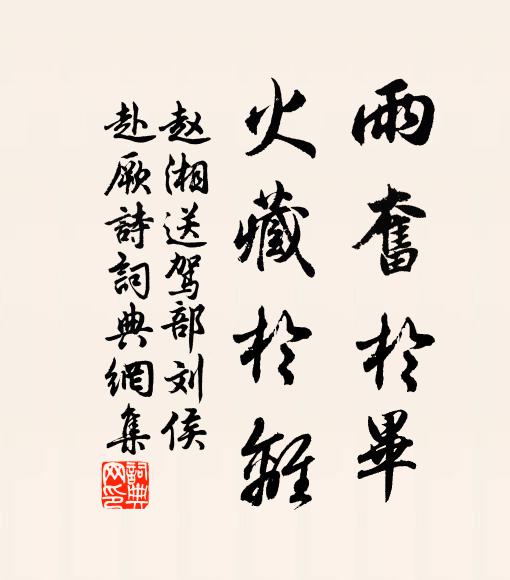 雨奮於畢
火藏於離
赵湘送驾部刘侯
赴厥詩詞典網集
詞典網印